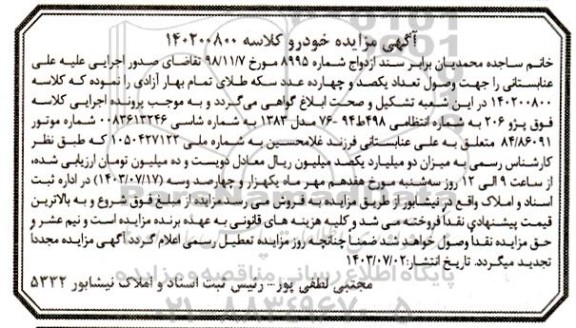 آگهی مزایده خودرو کلاسه ۱۴۰۲۰۰۸۰۰
خانم ساجده محمدیان برابر سند ازدواج شماره ۸۹۹۵ مورخ ۹۸/۱۱/۷ تقاضای صدور اجرایی علیه علی
عنابستانی را جهت وصول تعداد یکصد و چهارده عدد سکه طلای تمام بهار آزادی را نموده که کلاسه
۱۴۰۲۰۰۸۰۰ در این شعبه تشکیل و صحت ابلاغ گواهی می‌گردد و به موجب پرونده اجرایی کلاسه
فوق پژو ۲۰۶ به شماره انتظامی ۴۹۸ط۹۴ -۷۶ مدل ۱۳۸۳ به شماره شاسی ۰۰۸۳۶۱۳۲۴۶ شماره موتور
۸۴/۸۶۰۹۱ متعلق به علی عنابستانی فرزند غلامحسین به شماره ملی ۱۰۵۰۴۲۷۱۲۲ که طبق نظر
کارشناس رسمی به میزان دو میلیارد یکصد میلیون ریال معادل دویست و ده میلیون تومان ارزیابی شده،
از ساعت ۹ الی ۱۲ روز سه‌شنبه مورخ هفدهم مهر ماه یکهزار و چهارصد وسه (۱۴۰۳/۰۷/۱۷) در اداره ثبت
اسناد و املاک واقع در نیشابور از طریق مزایده به فروش می رسد مزایده از مبلغ فوق شروع و به بالاترین
قیمت پیشنهادی نقداً فروخته می شد و کلیه هزینه های قانونی به عهده برنده مزایده است و نیم عشر و
حق مزایده نقداً وصول خواهد شد ضمناً چنانچه روز مزایده تعطیل رسمی اعلام گردد آگهی مزایده مجدداً
تجدید میگردد. تاریخ انتشار:۱۴۰۳/۰۷/۰۲
مجتبی لطفی پور- رئیس ثبت اسناد و املاک نیشابور ۵۳۳۲
پایگاه اطلاع رسانی مناقصه و مزایده
۰۲۱-۸۸۳۴۹۶۷۰-۵